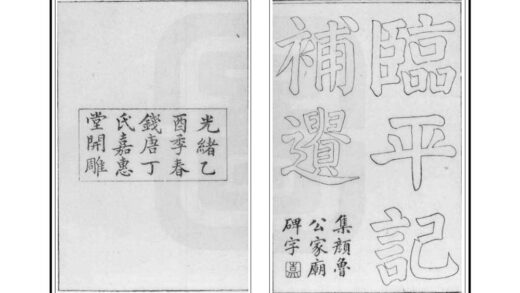 臨平記
補遺
集顏魯
公家廟
碑字
光緒乙
酉季春
錢唐丁
氏嘉惠
堂開雕